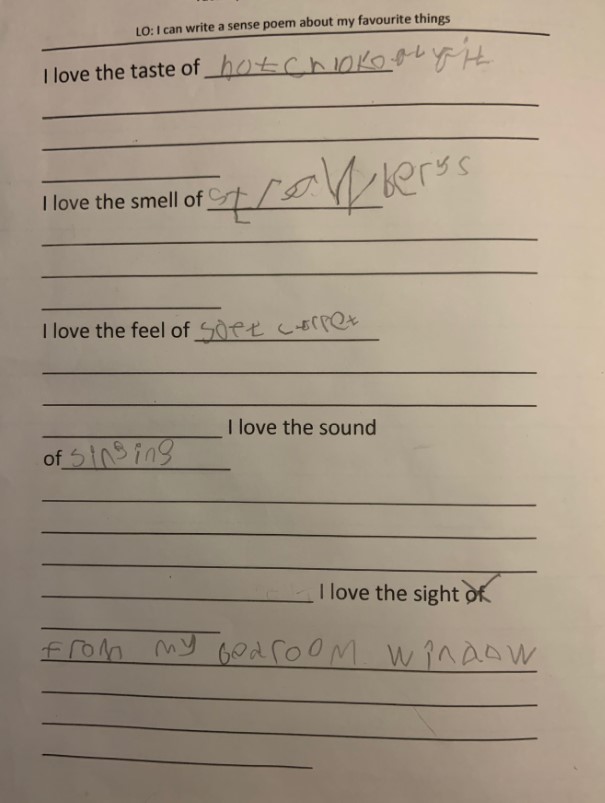 LO: I can write a sense poem about my favourite things
I love the taste of hot
I love the smell of strawberys
I love the feel of soft carpet
I love the sound
of singing
I love the sight of
from my bedroom window